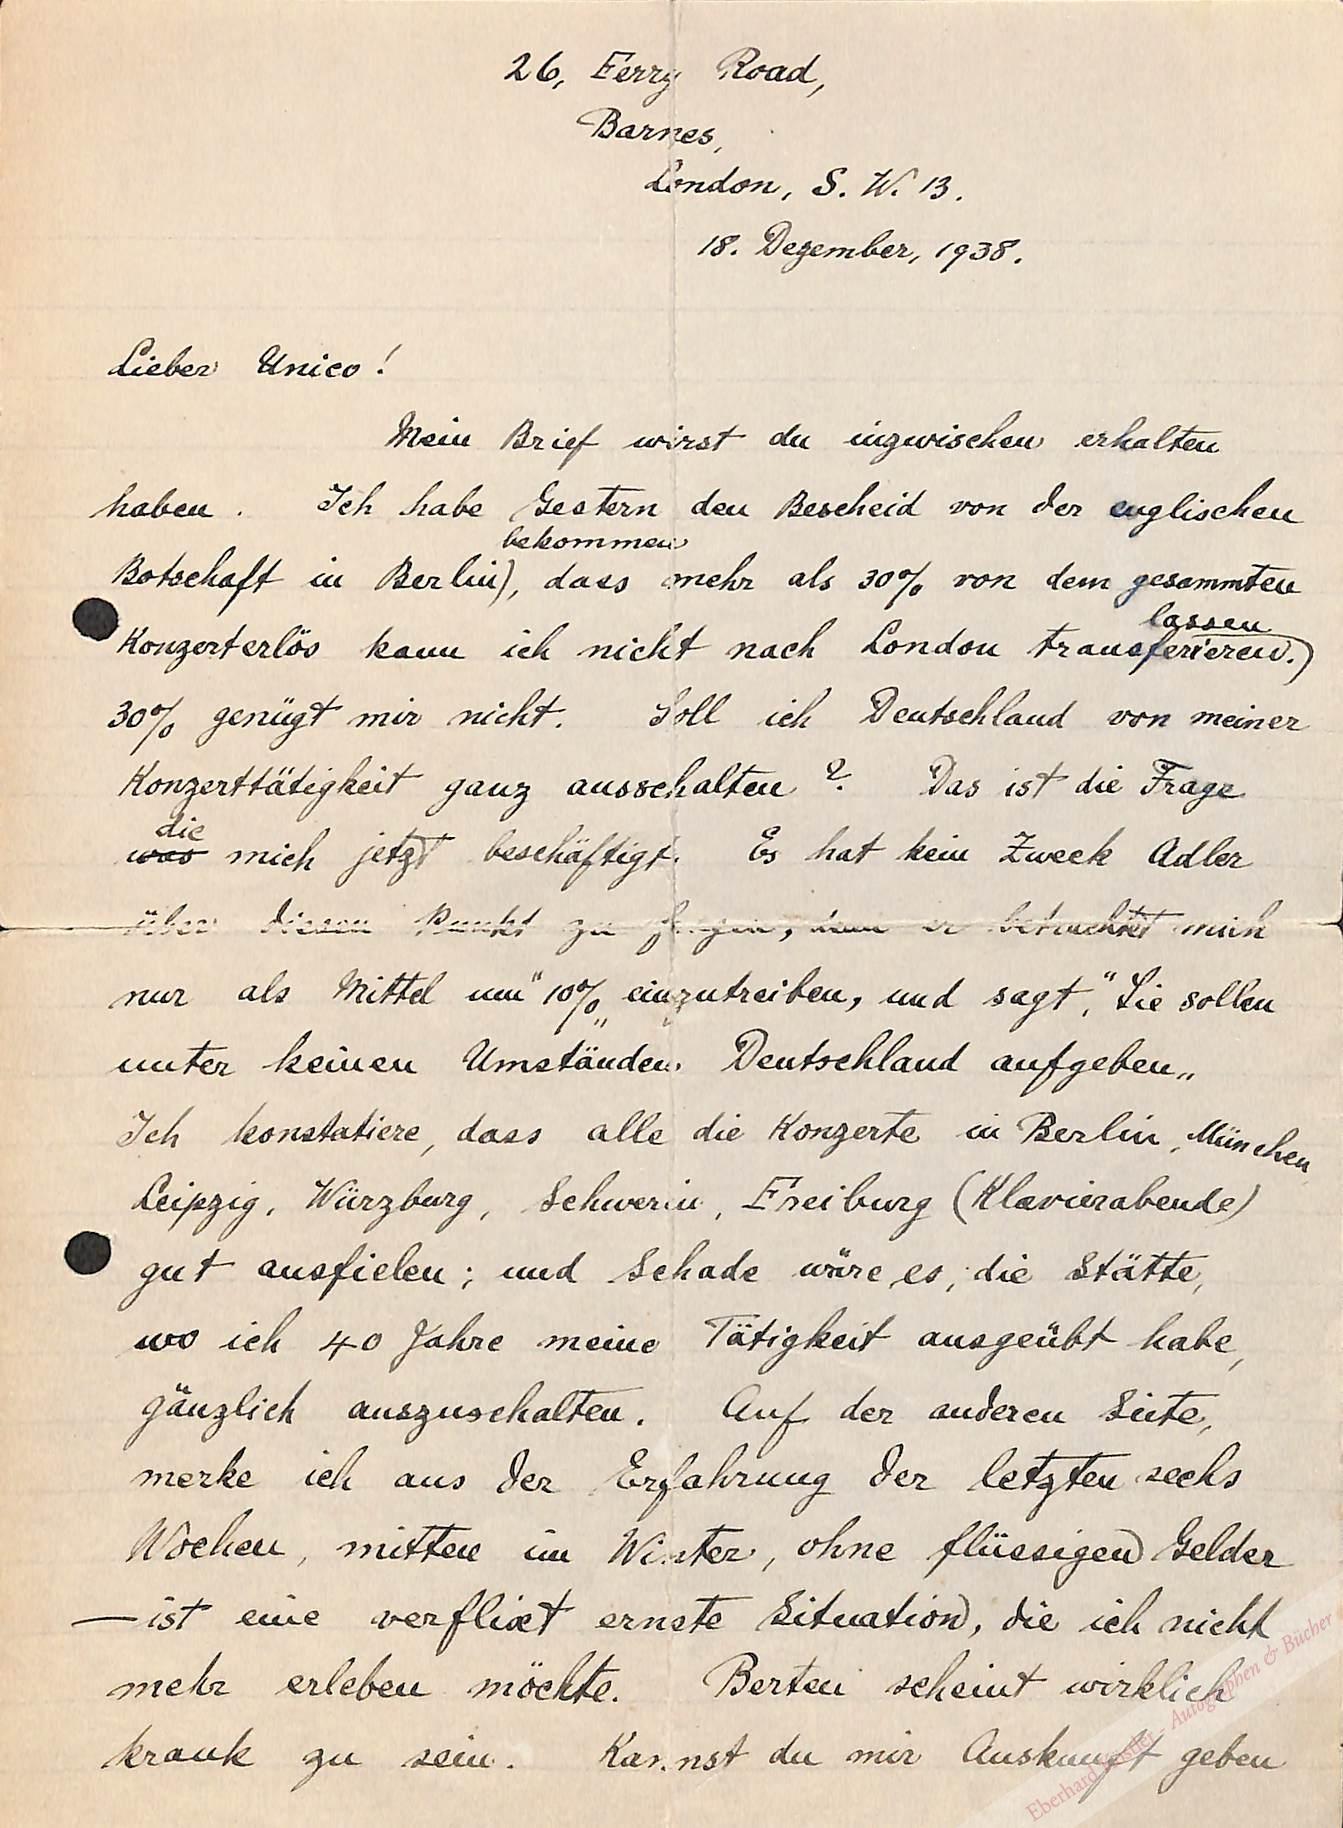 26, Ferry Road,
Barnes,
London, S. W. 13.
18. Dezember, 1938.
Lieber Unico!
Mein Brief wirst du inzwischen erhalten
haben. Ich habe Gestern den Bescheid von der englischen
bekommen
Botschaft in Berlin), dass mehr als 30% von dem gesammten
lassen
Konzerterlös kann ich nicht nach London transferieren.)
30% genügt mir nicht. Soll ich Deutschland von meiner
Konzerttätigkeit ganz ausschalten? Das ist die Frage
die
was mich jetzt beschäftigt. Es hat kein Zweck Adler
über diesen Punkt zu fragen, denn er betrachtet mich
nur als Mittel um "10%„ einzutreiben, und sagt, "Sie sollen
unter keinen Umständen Deutschland aufgeben„
Ich konstatiere, dass alle die Konzerte in Berlin, München
Leipzig, Würzburg, Schwerin, Freiburg (Klavierabende)
gut ausfielen; und Schade wäre es, die Stätte,
wo ich 40 Jahre meine Tätigkeit ausgeübt habe,
gänzlich auszuschalten. Auf der anderen Seite,
merke ich aus der Erfahrung der letzten sechs
Wochen, mitten im Winter, ohne flüssigen Gelder
— ist eine verflixt ernste Situation, die ich nicht
mehr erleben möchte. Bertei scheint wirklich
krank zu sein. Kannst du mir Auskunft geben
Eberhard Köstler - Autographen & Bücher